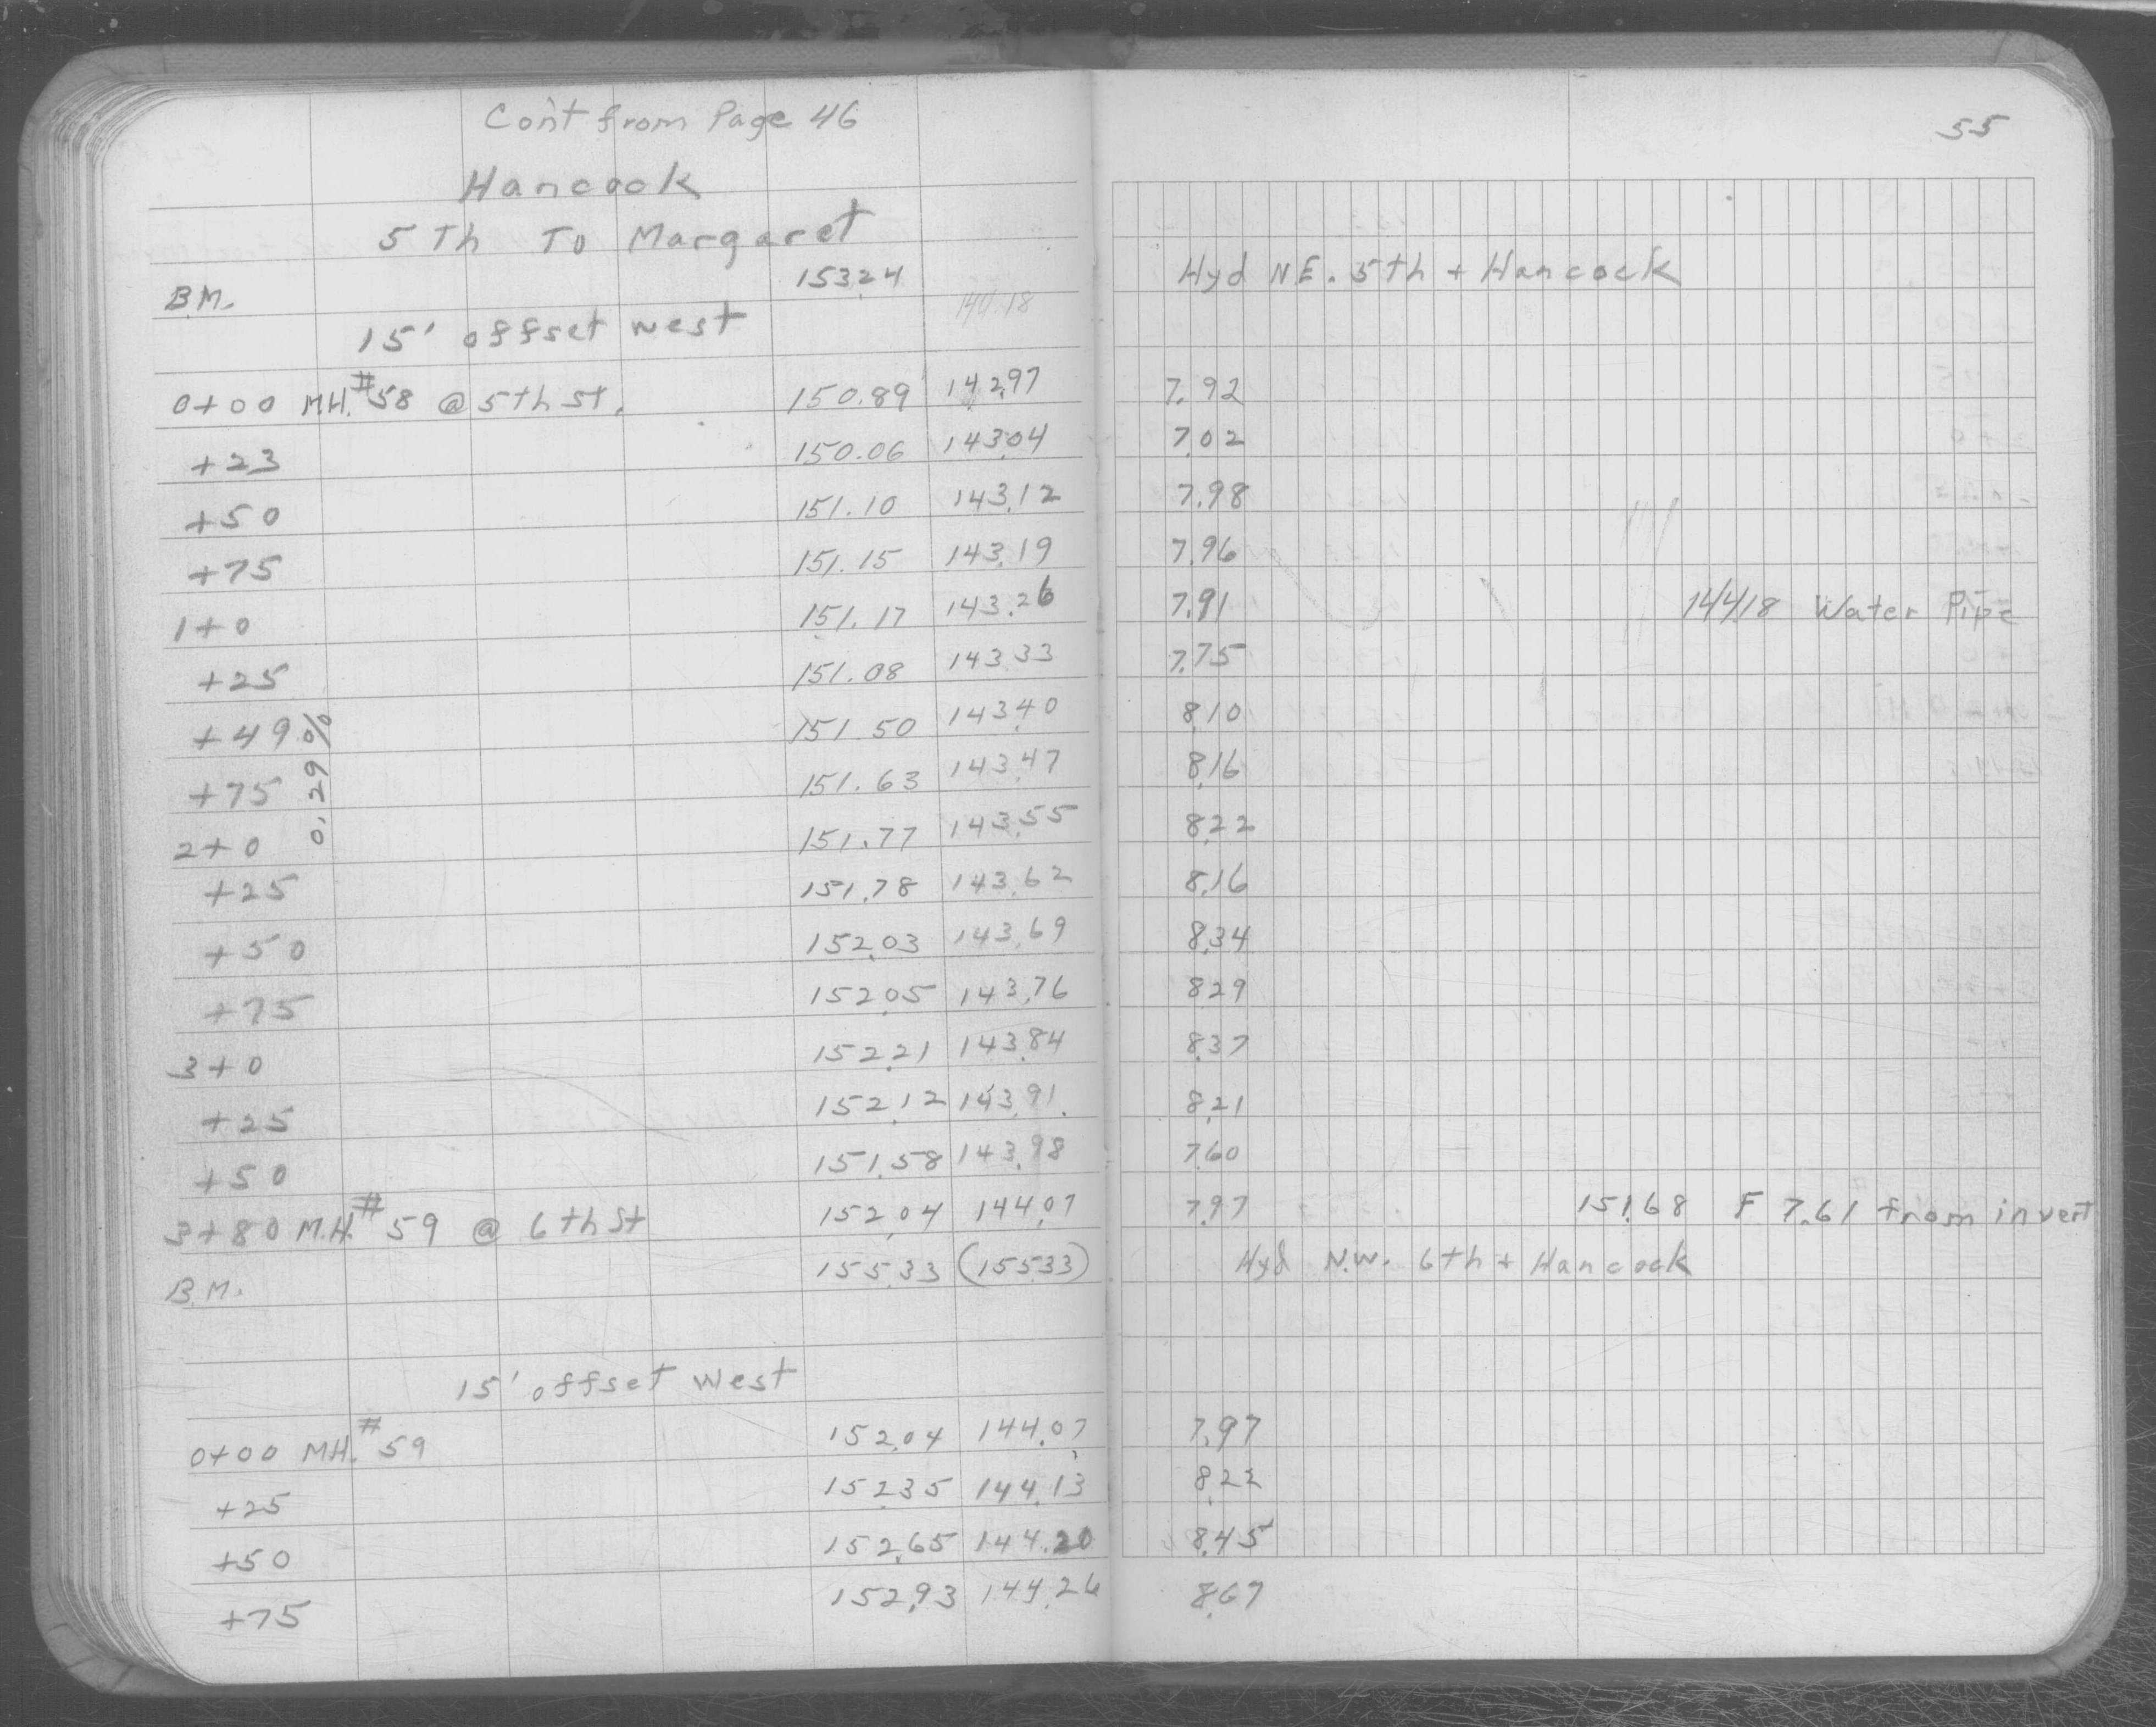 Con't from Page 46
55
Hancock
5 Th To Margaret
B.M. 153.24 Hyd N.E. 5th + Hancock
15' offset west 140.18
0+00 M.H. #58 @ 5th st. 150.89 142.97 7.92
+23 150.06 143.04 7.02
+50 151.10 143.12 7.98
+75 151.15 143.19 7.96
1+0 151.17 143.26 7.91 144.18 Water Pipe
+25 151.08 143.33 7.75
+49 151.50 143.40 8.10
+75 0.29% 151.63 143.47 8.16
2+0 151.77 143.55 8.22
+25 151.78 143.62 8.16
+50 152.03 143.69 8.34
+75 152.05 143.76 8.29
3+0 152.21 143.84 8.37
+25 152.12 143.91 8.21
+50 151.58 143.98 7.60
3+80 M.H. #59 @ 6th St 152.04 144.07 7.97 151.68 F 7.61 from invert
B.M. 155.33 (155.33) Hyd N.W. 6th + Hancock
15' offset West
0+00 MH. #59 152.04 144.07 7.97
+25 152.35 144.13 8.22
+50 152.65 144.20 8.45
+75 152.93 144.26 8.67